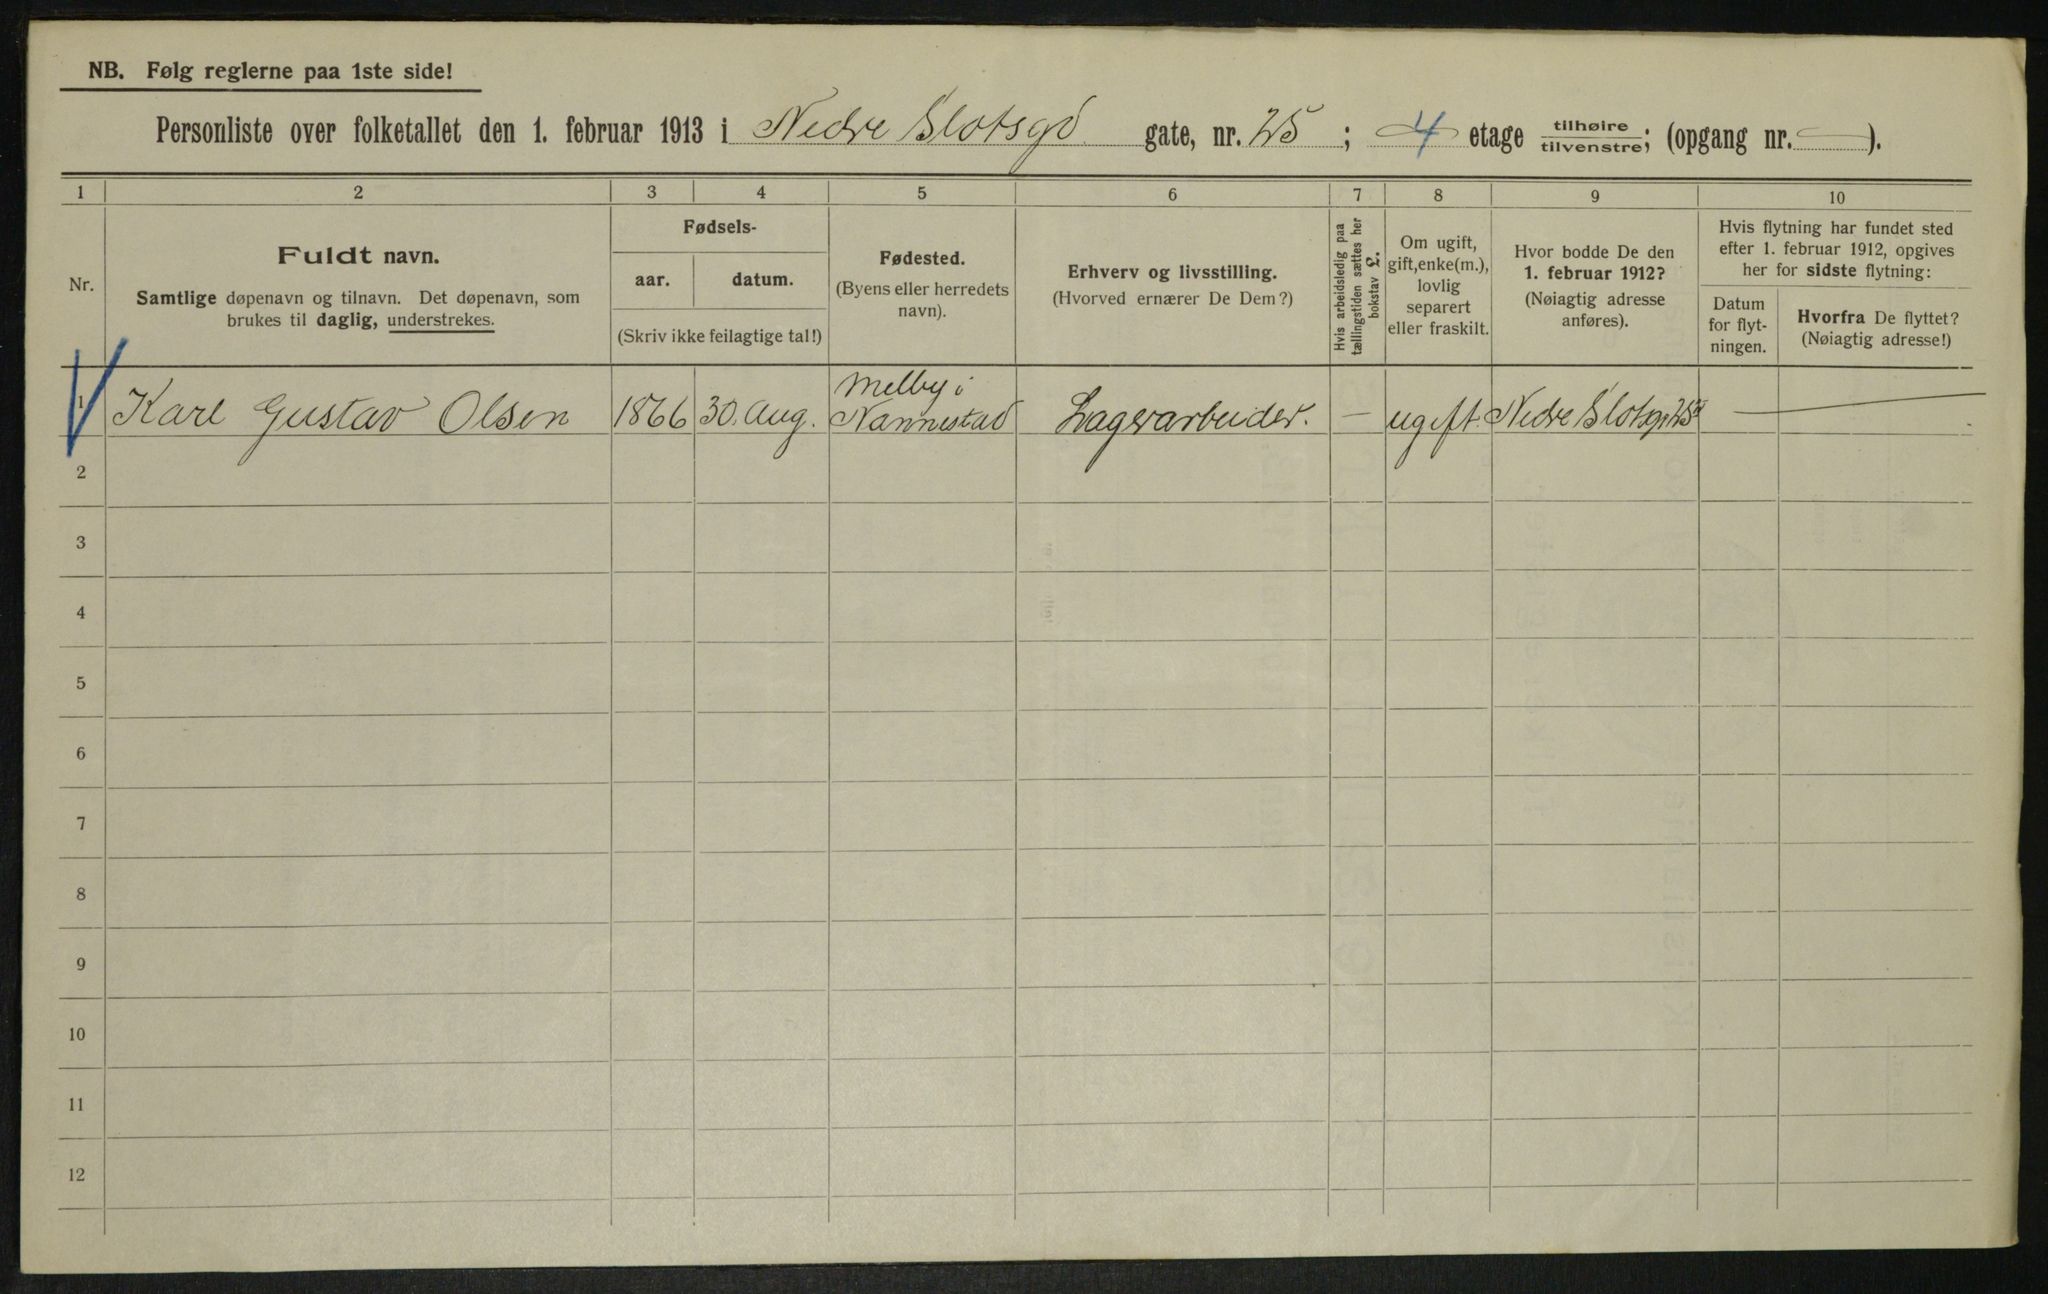 NB. Følg reglerne paa 1ste side!
Personliste over folketallet den 1. februar 1913 i Nedre Slotsgd gate, nr. 25; 4 etage tilhøire tilvenstre; (opgang nr. — ).
1 2 3 4 5 6 7 8 9 10
Nr.
Fuldt navn.
Samtlige døpenavn og tilnavn. Det døpenavn, som
brukes til daglig, understrekes.
Fødsels-
aar. datum.
(Skriv ikke feilagtige tal!)
Fødested.
(Byens eller herredets
navn).
Erhverv og livsstilling.
(Hvorved ernærer De Dem?)
Hvis arbeidsledig paa
tællingstiden sættes her
bokstav L.
Om ugift,
gift, enke(m.),
lovlig
separert
eller fraskilt.
Hvor bodde De den
1. februar 1912?
(Nøiagtig adresse
anføres).
Hvis flytning har fundet sted
efter 1. februar 1912, opgives
her for sidste flytning:
Datum
for flyt-
ningen.
Hvorfra De flyttet?
(Nøiagtig adresse!)
1 Karl Gustav Olsen 1866 30. Aug. Melby i Nannestad Lagerarbeider. — ugift. Nedre Slotsg. 25 —
2
3
4
5
6
7
8
9
10
11
12